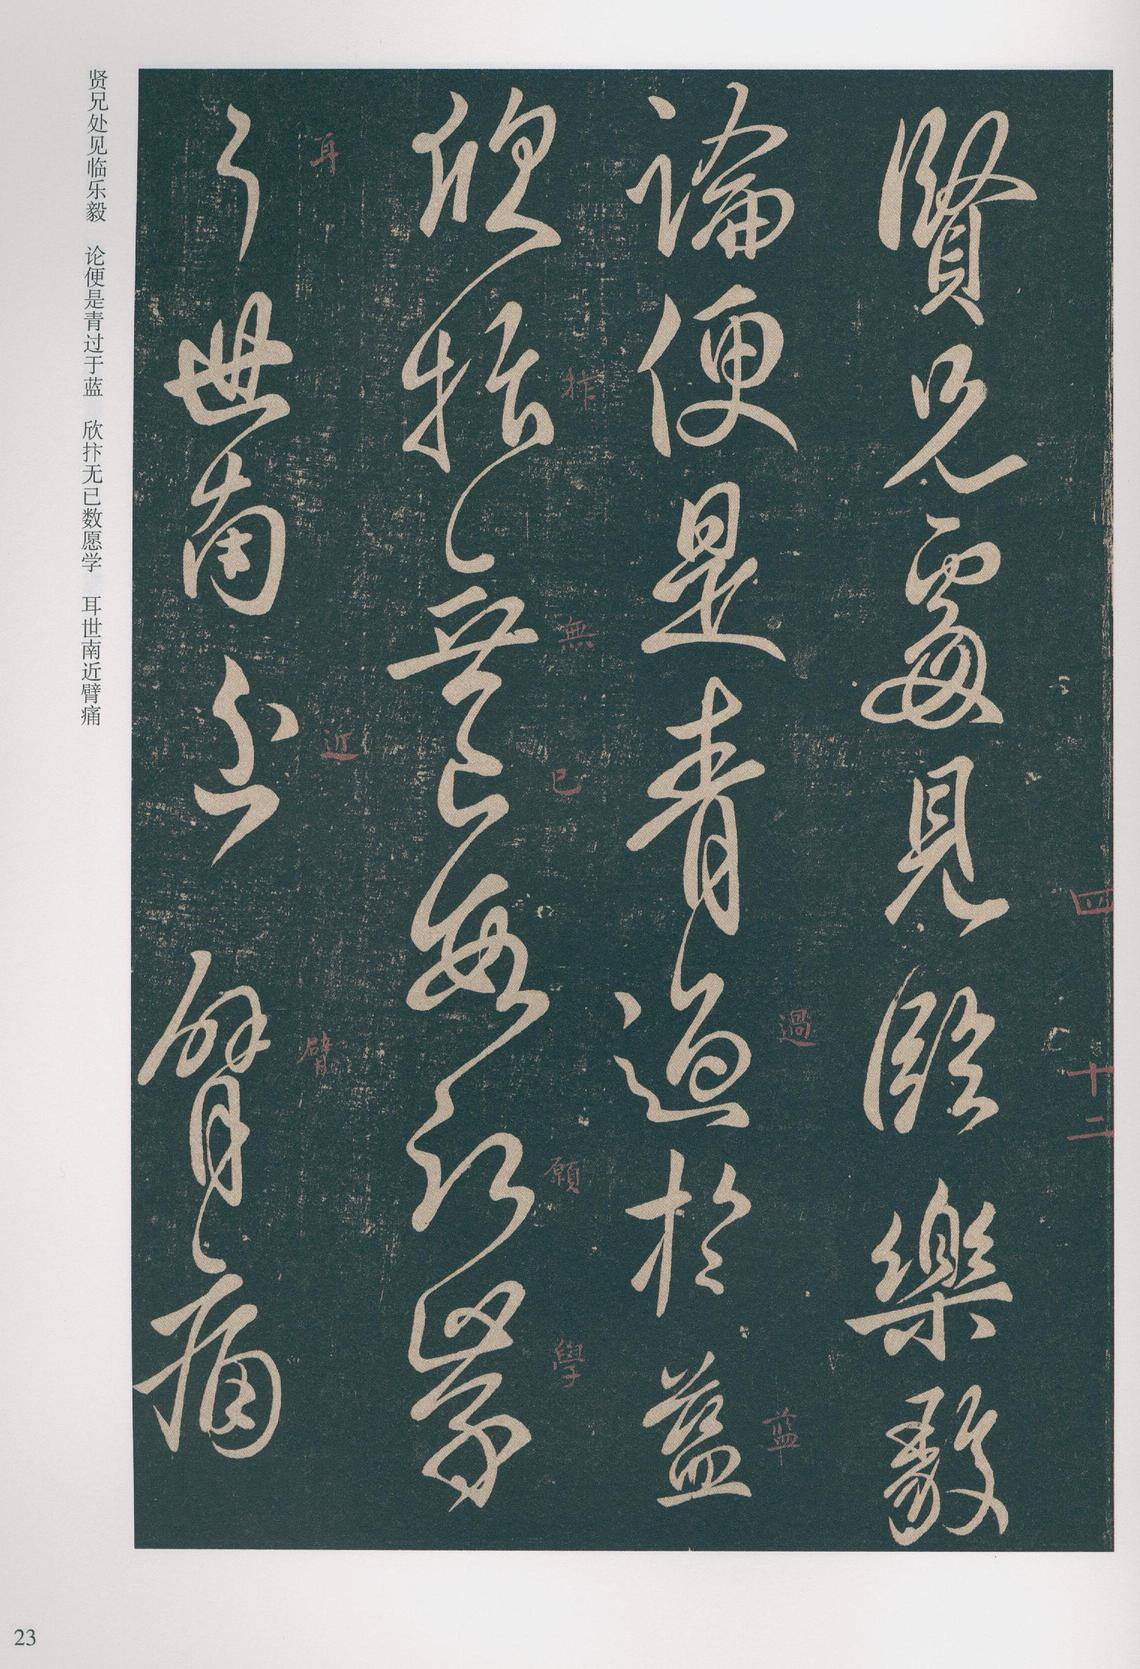 賢兄處見臨樂毅
論便是青過於藍
欣抃無已數願學
耳世南近臂痛
耳
抃
無
已
近
過
臂
願
學
藍
四十二
贤兄处见临乐毅 论便是青过于蓝 欣抃无已数愿学 耳世南近臂痛
23